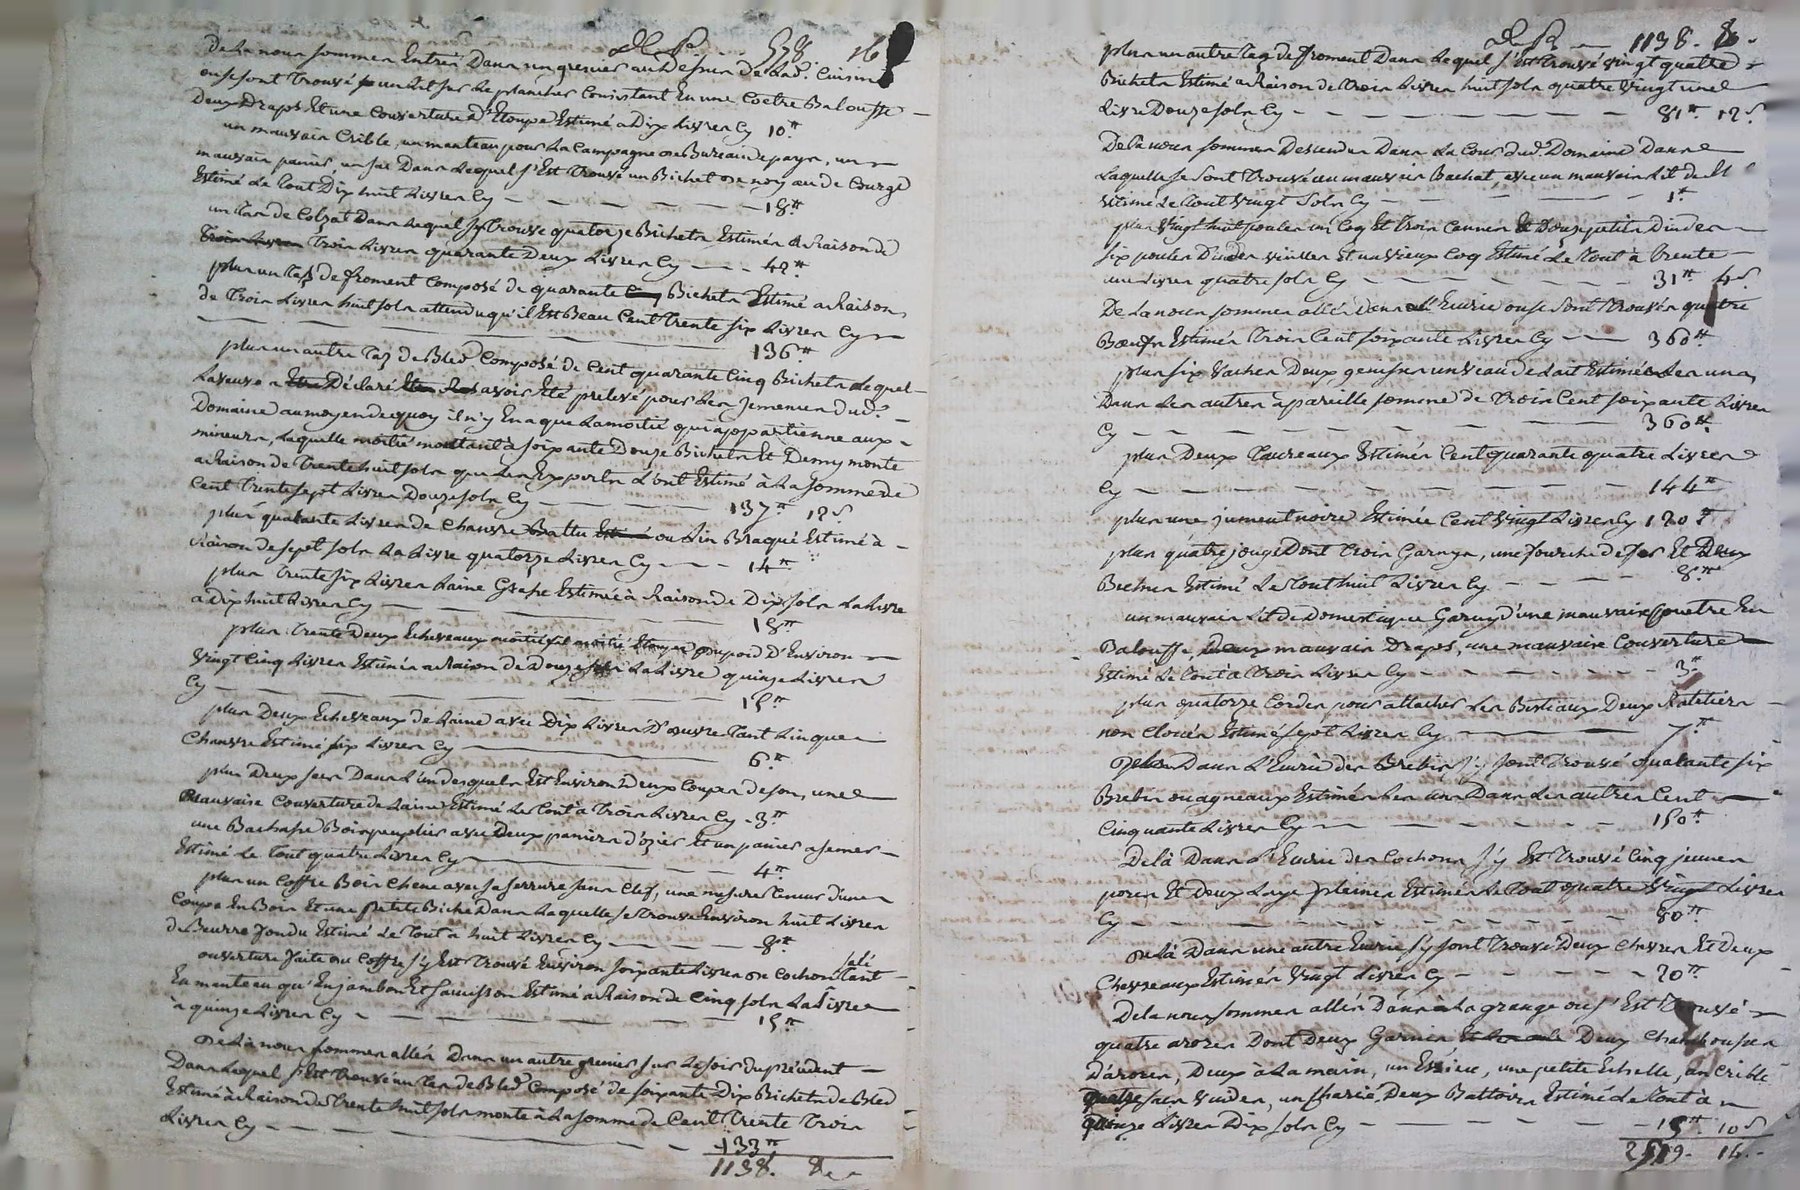 538. 16
De La nous sommes Entrés Dans un grenier au Desus de Lad. Cuisine
ou se sont Trouvé un Lit sur Le plancher Consistant En une Coetre Balouffe
Deux Draps Et une Couverture D'Etoupe Estimé a Dix Livres Cy 10.tt
un mauvais Crible, un manteau pour La Campagne de Bureau de pays, un
mauvais panier, un sac Dans Lequel s'Est Trouvé un Bichet de noyau de Courge
Estimé Le Tout Dix huit Livres Cy 18.tt
un Tas de Colzat Dans Lequel s'y Trouve quatorze Bichets Estimés a Raison de
Trois Livres quarante Deux Livres Cy 42.tt
plus un Tas de froment Composé de quarante Bichets Estimé a Raison
de Trois Livres huit sols attendu qu'il Est Beau Cent Trente six Livres Cy
136.tt
plus un autre Tas de Bled Composé de Cent quarante Cinq Bichets Lequel
La veuve a Déclaré avoir Eté prelevé pour Les semences dud.
Domaine au moyen de quoy il n'y En a que La moitié qui appartienne aux
mineurs, Laquelle moitié montant à soixante Douze Bichets Et Demy monte
a Raison de Trente huit sols que Les Experts L'ont Estimé à La somme de
Cent Trente sept Livres Douze sols Cy 137.tt 12 s.
plus quarante Livres de Chanvre Battu ou Lin Braqué Estimé à
Raison de sept sols La Livre quatorze Livres Cy 14.tt
plus Trente six Livres Laine Grasse Estimée à Raison de Dix sols La Livre
a Dix huit Livres Cy 18.tt
plus Trente Deux Echeveaux moitié fil moitié Etoupes du poid D'Environ
Vingt Cinq Livres Estimés a Raison de Douze sols La Livre quinze Livres
Cy 15.tt
plus Deux Echeveaux de Laine avec Dix Livres D'œuvre Tant Lin que
Chanvre Estimé six Livres Cy 6.tt
plus Deux sacs Dans L'un desquels Est Environ Deux Coupes de son, une
Mauvaise Couverture de Laine Estimé Le Tout à Trois Livres Cy 3.tt
une Bachasse Bois peuplier avec Deux paniers d'ozier Et un panier a semer
Estimé Le Tout quatre Livres Cy 4.tt
plus un Coffre Bois Chene avec sa serrure sans Clef, une mesure Tenue D'une
Coupe En Bois Et une petite Biche Dans Laquelle se Trouve Environ huit Livres
de Beurre fondu Estimé Le Tout a huit Livres Cy 8.tt
ouverture faite du Coffre s'y Est Trouvé Environ soixante Livres de Cochon salé Tant
En manteau qu'En jambon Et saucisson Estimé a Raison de Cinq sols La Livre
a quinze Livres Cy 15.tt
De La nous sommes allés Dans un autre grenier sur Le soir du précédent
Dans Lequel s'Est Trouvé un Tas de Bled Composé de soixante Dix Bichets de Bled
Estimé à Raison de Trente huit sols monte à La somme de Cent Trente Trois
Livres Cy
133.tt
1138. 8.
1138. 8.
plus un autre Tas de froment Dans Lequel s'Est Trouvé Vingt quatre
Bichets Estimé a Raison de Trois Livres huit sols quatre Vingt une
Livre Douze sols Cy 81.tt 12 s.
De La nous sommes Descendus Dans La Cour dud. Domaine Dans
Laquelle se sont Trouvé un mauvais Bachat, avec un mauvais Lit de
Estimé Le Tout Vingt Sols Cy 1.tt
plus Vingt huit poules un Coq Et Trois Cannes Et Douze petits Dindes
six poules Dindes vieilles Et un Vieux Coq Estimé Le Tout à Trente
une Livres quatre sols Cy 31.tt 4 s.
De La nous sommes allés Dans L'Ecurie ou se sont Trouvés quatre
Bœufs Estimés Trois Cent soixante Livres Cy 360.tt
plus six Vaches Deux genisses un Veau de Lait Estimés Les unes
Dans Les autres a pareille somme de Trois Cent soixante Livres
Cy 360.tt
plus Deux Taureaux Estimés Cent quarante quatre Livres
Cy 144.tt
plus une jument noire Estimée Cent Vingt Livres Cy 120.tt
plus quatre jougs Dont Trois Garnys, une fourche de fer Et Deux
Bechus Estimé Le Tout huit Livres Cy 8.tt
un mauvais Lit de Domestique Garny d'une mauvaise Couetre En
Balouffe, Deux mauvais Draps, une mauvaise Couverture
Estimé Le Tout à Trois Livres Cy 3.tt
plus quatorze Cordes pour attacher Les Bestiaux Deux Rateliers
non Cloués Estimé sept Livres Cy 7.tt
Dans L'Ecurie des Brebis s'y sont Trouvé quarante six
Brebis ou agneaux Estimés Les uns Dans Les autres Cent
Cinquante Livres Cy 150.tt
De là Dans L'Ecurie des Cochons s'y Est Trouvé Cinq jeunes
porcs Et Deux Laye pleines Estimés Le Tout quatre Vingt Livres
Cy 80.tt
De là Dans une autre Ecurie s'y sont Trouvé Deux Chevres Et Deux
Chevreaux Estimés Vingt Livres Cy 20.tt
De la nous sommes allés Dans La grange ou s'Est Trouvé
quatre arozes Dont Deux Garnies Deux
D'arozes, Deux à La main, un Essieu, une petite Echelle, un Crible
quatre sacs Vuides, un Charié, Deux Battoirs Estimé Le Tout à
quinze Livres Dix sols Cy 15.tt 10 s
2519. 14.